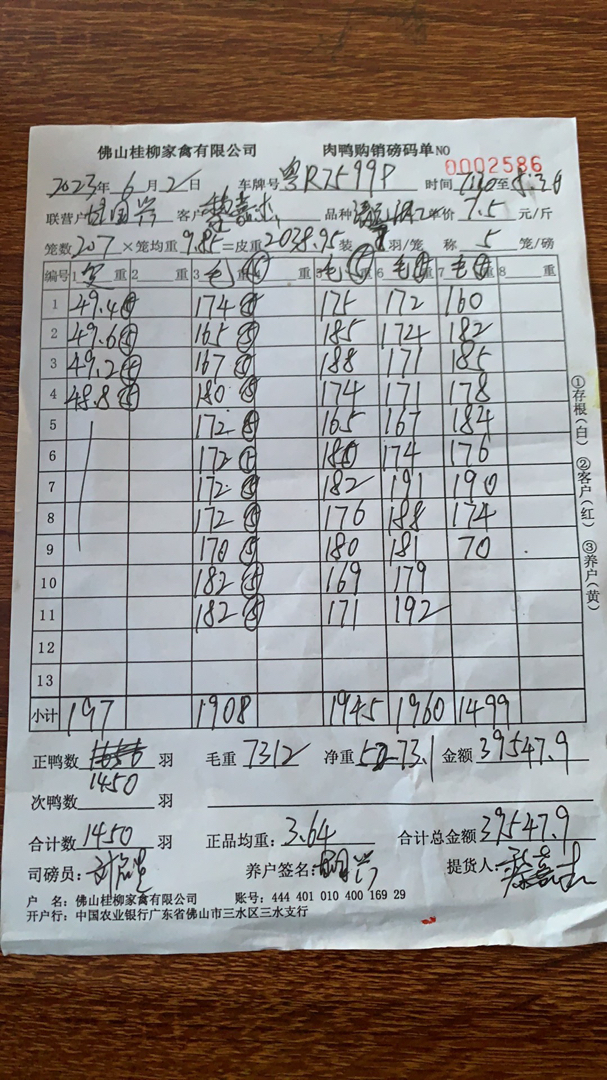 佛山桂柳家禽有限公司 肉鸭购销磅码单 NO 0002586
2023年 6月 2日 车牌号 粤R7599P 时间 至 8:30
联营户 客户 品种 单价 7.5 元/斤
笼数 207 ×笼均重 9.85 =皮重 2038.95 装 8 羽/笼 称 5 笼/磅
编号 1 空 重 2 重 3 毛 重 4 重 5 毛 重 6 毛 重 7 毛 重 8 重
1 49.4⑤ 174⑤ 175 172 160
2 49.6⑤ 165⑤ 185 174 182
3 49.2⑤ 167⑤ 188 171 185
4 48.8⑤ 180⑤ 174 171 178
5 172⑤ 165 167 184
6 172⑤ 180 174 176
7 172⑤ 182 191 190
8 172⑤ 176 188 174
9 170⑤ 180 181 70
10 182⑤ 169 179
11 182⑤ 171 192
12
13
小计 197 1908 1945 1960 1499
正鸭数 羽 毛重 7312 净重 5273.1 金额 39547.9
1450
次鸭数 羽
合计数 1450 羽 正品均重: 3.64 合计总金额 39547.9
司磅员: 养户签名: 提货人:
户 名: 佛山桂柳家禽有限公司 账号: 444 401 010 400 169 29
开户行: 中国农业银行广东省佛山市三水区三水支行
①存根(白) ②客户(红) ③养户(黄)